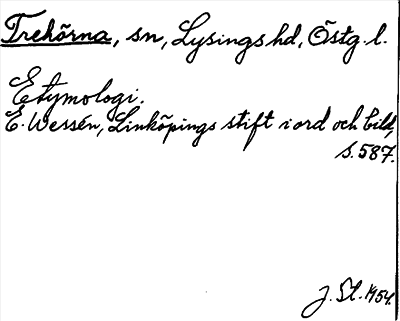 Trehörna, sn, Lysings hd, Östg. l.
Etymologi.
E. Wessén, Linköpings stift i ord och bild,
s. 587.
J. St. 1954.